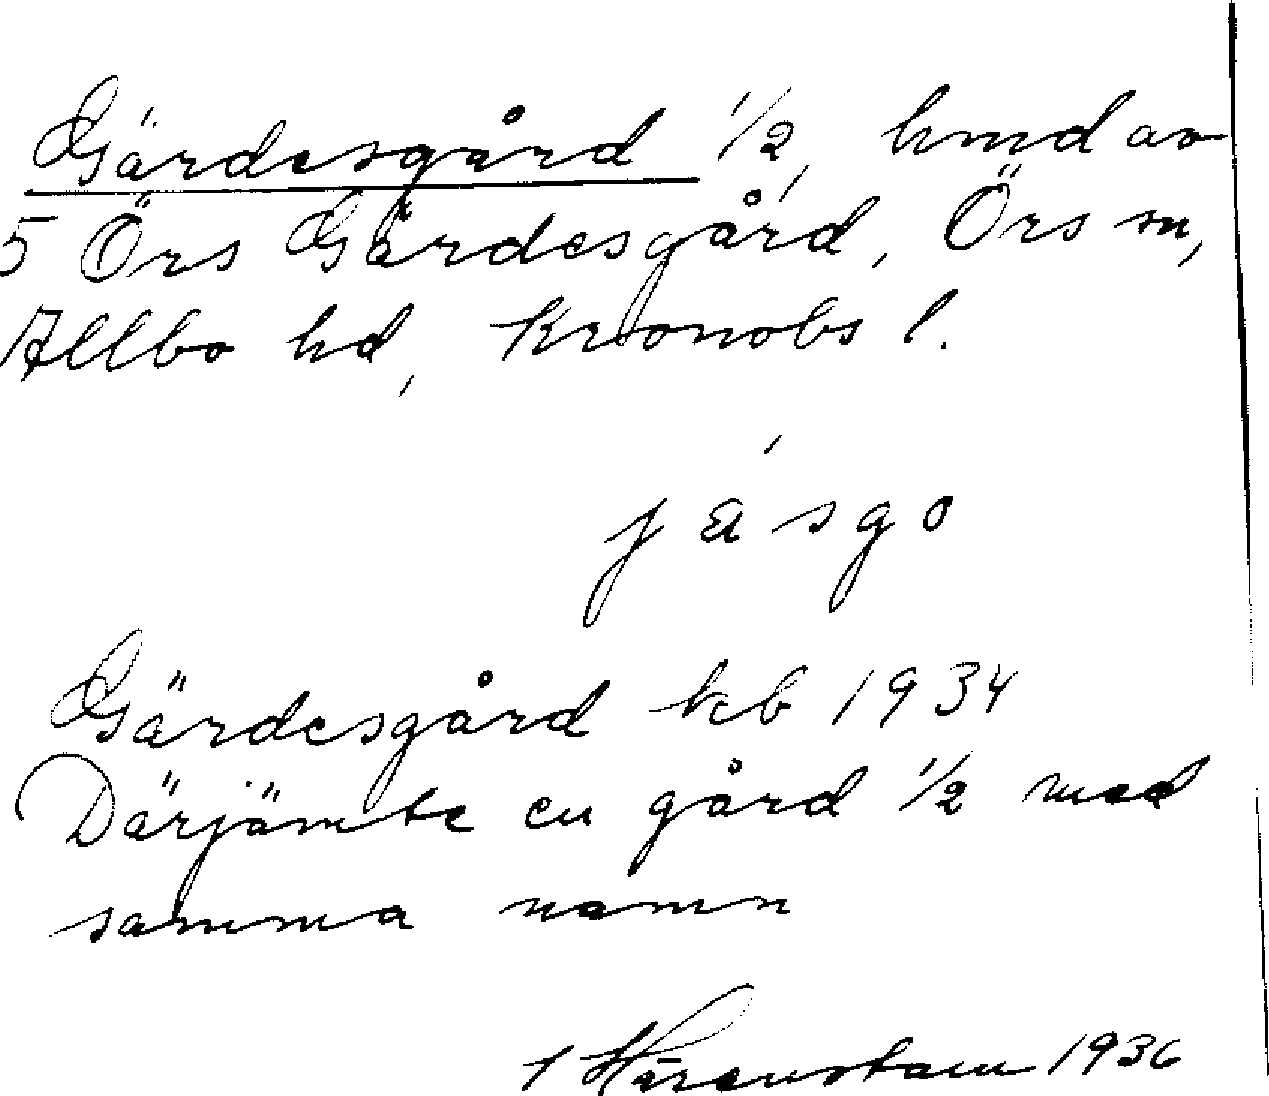 Gärdesgård 1/2, hmd av
5 Örs Gärdesgård, Örs sn,
Allbo hd, Kronobs l.
jásgo
Gärdesgård kb 1934
Därjämte en gård 1/2 med
samma namn
Härenstam 1936